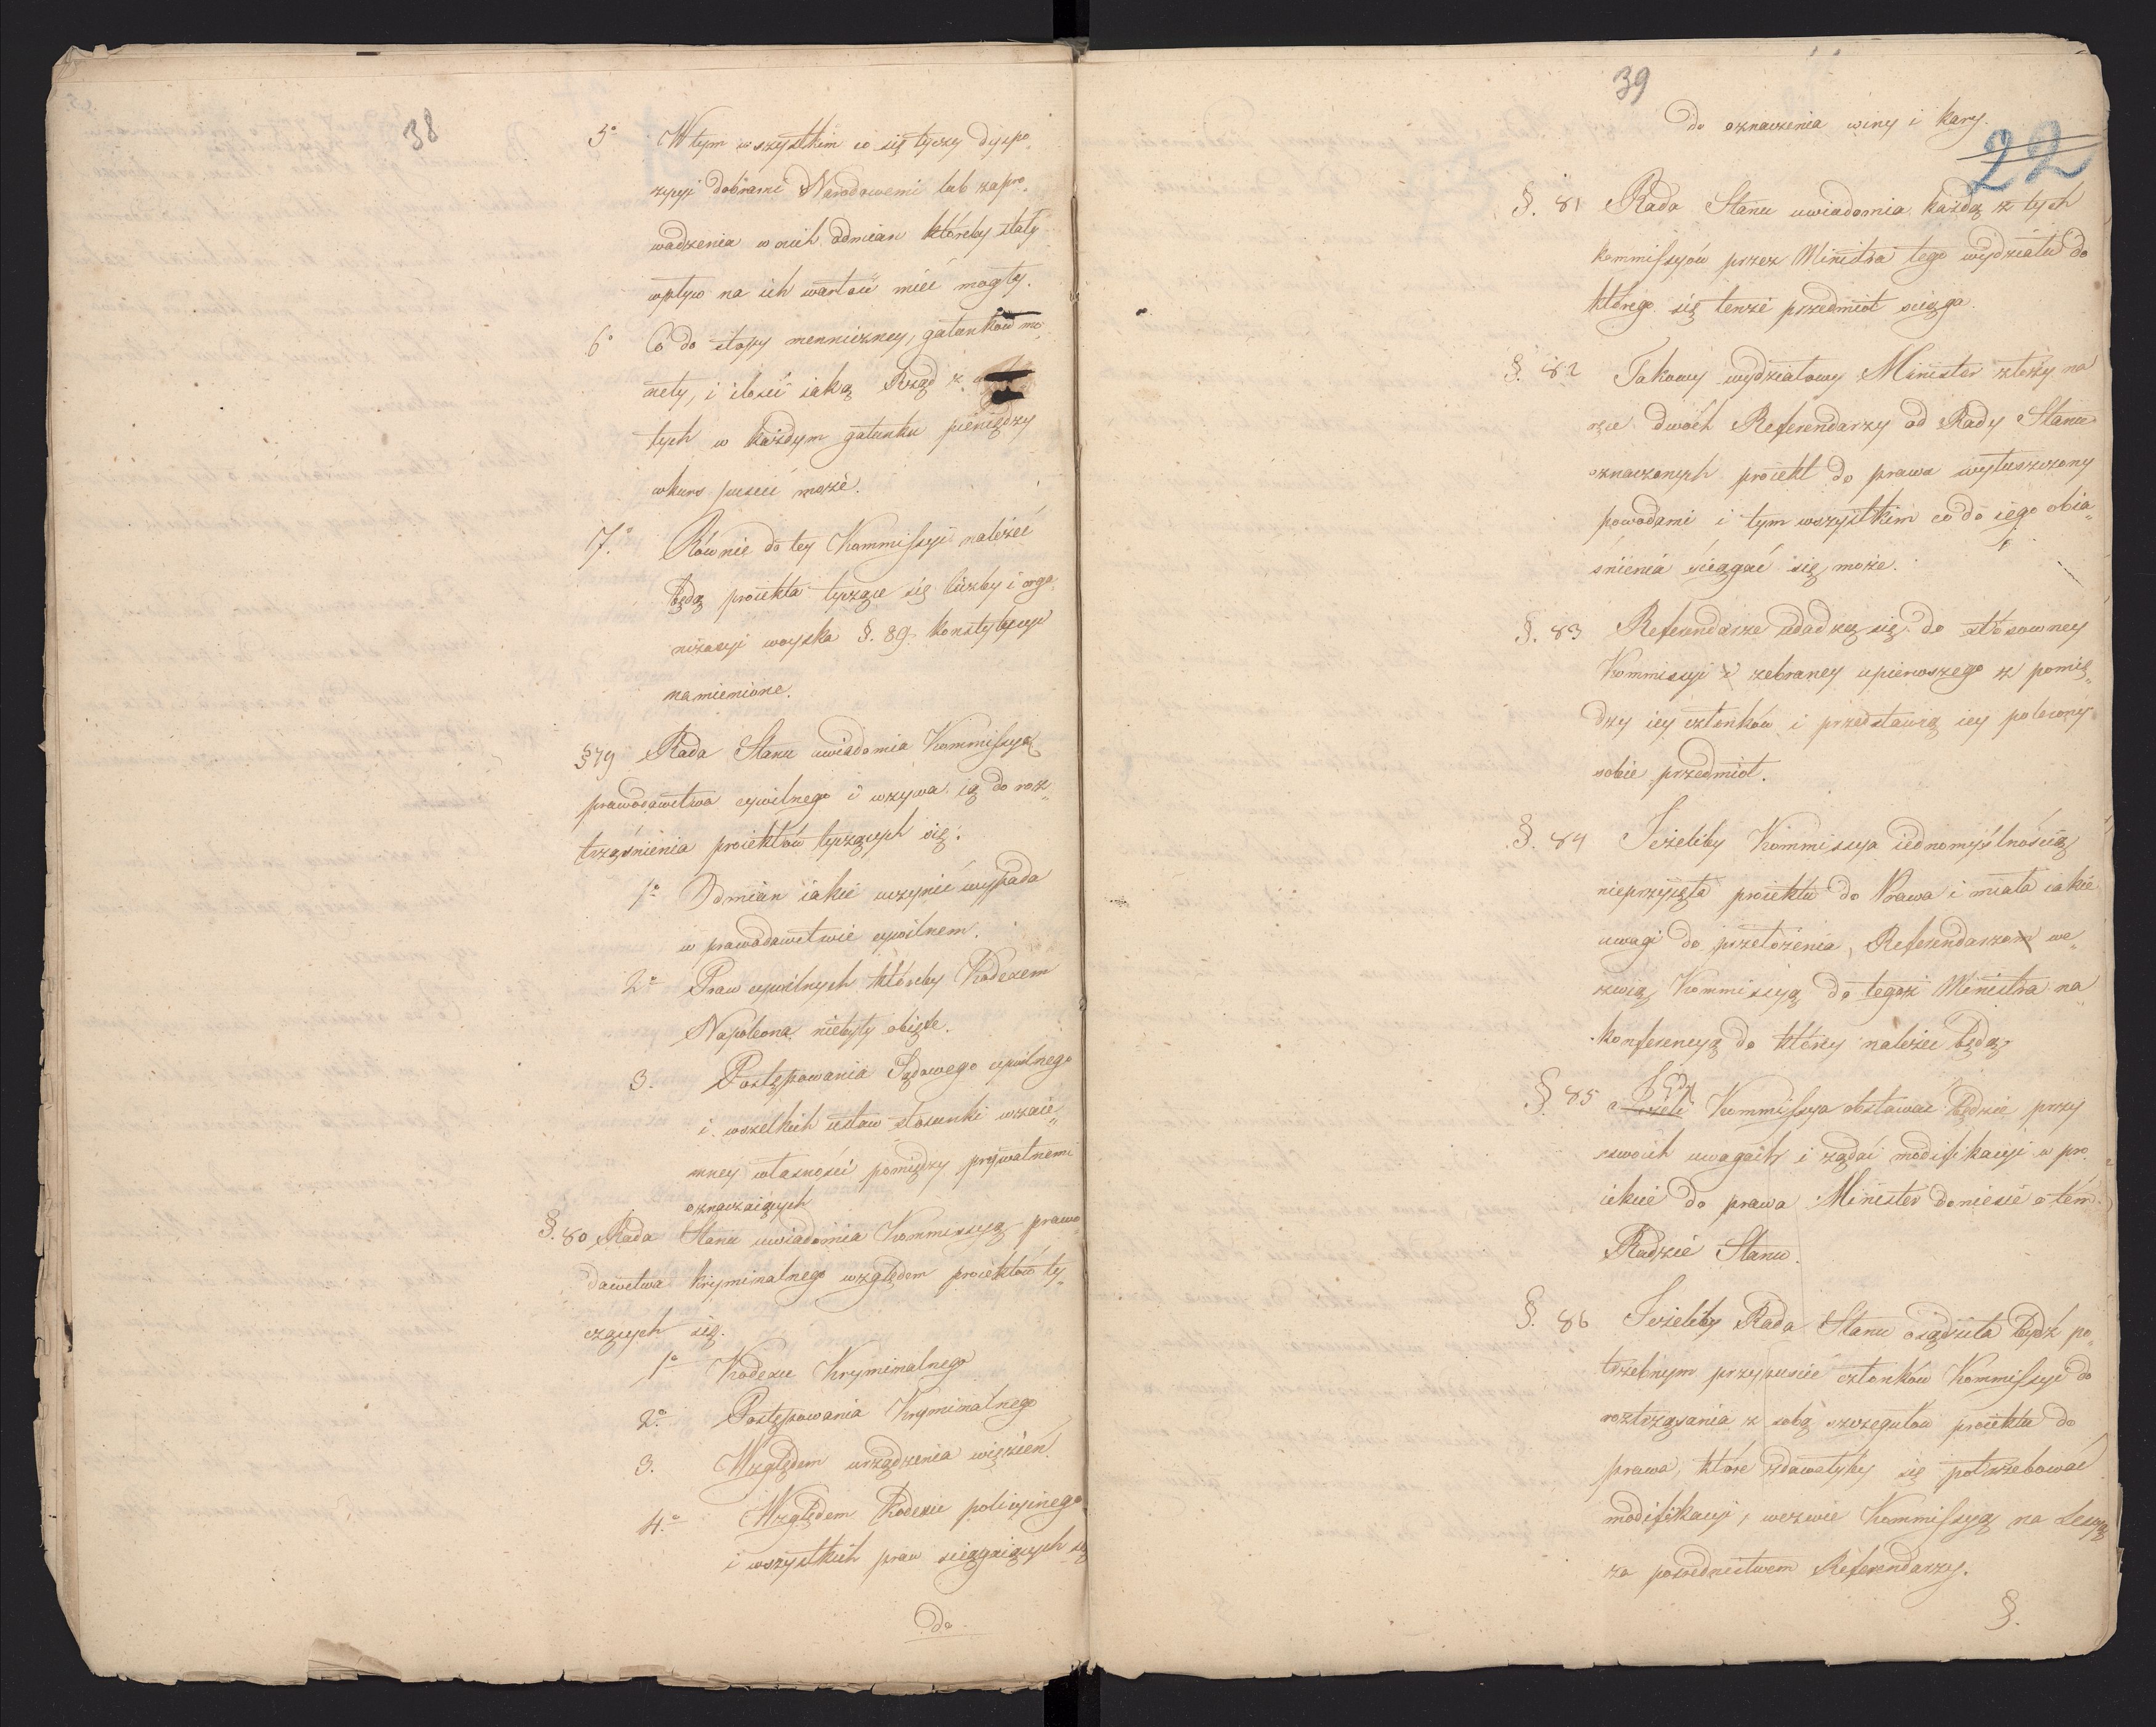 38
5° W tym wszystkim co się tyczy dyspo„
zycyi dobrami Narodowemi lub zapro„
wadzenia w nich odmian któreby stały
wpływ na ich wartość mieć mogły.
6° Co do stopy menniczney, gatunków mo„
nety, i ilości iaką Rząd z
tych w każdym gatunku pieniędzy
w kurs puścić może.
7.° Równie do tey Kommissyi należeć
będą proiekta tyczące się liczby i orga„
nizacyi woyska §. 89. konstytucyi
namienione.
§ 79 Rada Stanu uwiadomia Kommissyą
prawodawctwa cywilnego i wzywa ią do roz„
trząśnienia proiektów tyczących się.
1° Odmian iakie uczynić wypada
w prawodawctwie cywilnem.
2° Praw cywilnych któreby Kodexem
Napoleona niebyły obięte.
3. Postępowania Sądowego cywilnego
i wszelkich ustaw stosunki wzaie„
mney własności pomiędzy prywatnemi
oznaczaiących
§. 80 Rada Stanu uwiadomia Kommissyą prawo„
dawctwa kryminalnego względem proiektów ty„
czących się.
1° Kodexu Kryminalnego
2° Postępowania Kryminalnego
3. Względem urządzenia więzień.
4.° Względem Kodexu policyinego
i wszystkich praw ściągaiących się
do
39
do oznaczenia winy i kary.
22
§. 81 Rada Stanu uwiadomia każdą z tych
kommissyów przez Ministra tego wydziału do
którego się tenże przedmiot ściąga.
§. 82 Takowy wydziałowy Minister złoży na
ręce dwóch Referendarzy od Rady Stanu
oznaczonych proiekt do prawa wyłuszczony
powodami i tym wszystkim co do iego obia„
śnienia ściągać się może.
§. 83 Referendarze udadzą się do stósowney
Kommissyi zebraney u pierwszego z pomię„
dzy iey członków i przedstawią iey polecony
sobie przedmiot.
§. 84 Jeżeliby Kommissya iednomyślnością
nieprzyięła proiektu do Prawa i miała iakie
uwagi do przełożenia, Referendarze we„
zwią Kommissyą do tegoż Ministra na
konferencyą do któréy należeć będą.
§ 85 Gdy Kommissya obstawać będzie przy
swoich uwagach i żądać modifikacyi w pro„
iekcie do prawa Minister doniesie o tém
Radzie Stanu.
§. 86 Jeżeliby Rada Stanu osądziła bydź po„
trzebnym przypuścić członków Kommissyi do
roztrząsania z sobą szczegułów proiektu do
prawa, które zdawałyby się potrzebować
modifikacyi, wezwie Kommissyą na Sessyą
za pośrednictwem Referendarzy.
§.